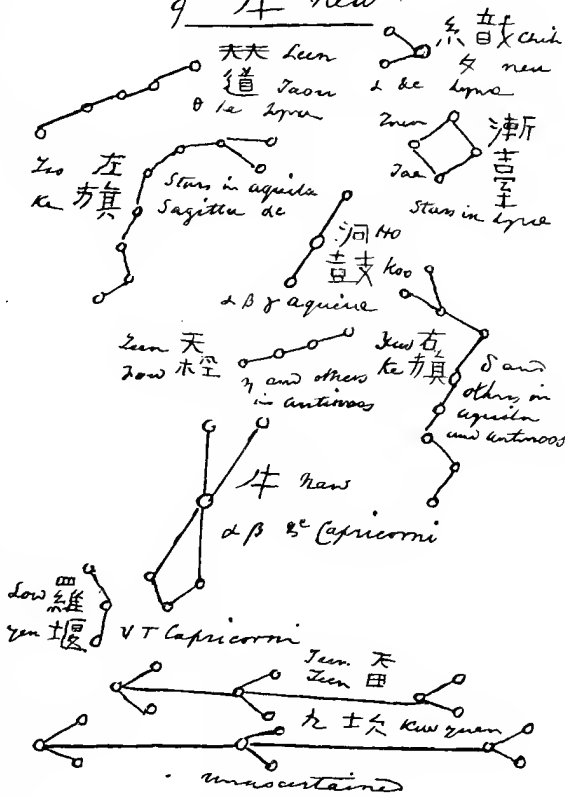 9 牛 New
天 Leen
道 Taou
θ ι &c Lyra
織 Chih
女 neu
α &c Lyra
漸
臺
Tsëen
Tae
Stars in Lyra
Tso 左
Ke 旗
Stars in aquila
Sagitta &c
河 Ho
鼓 Koo
α β γ aquila
Teen 天
Fow 桴
η and others
in antinoos
Yuw 右
Ke 旗
δ and
others in
aquila
and antinoos
牛 Naw
α β ξ &c Capricorni
Low 羅
yen 堰
ν τ Capricorni
Teen 天
Teen 田
九 坎 Kuw yuen
unascertained